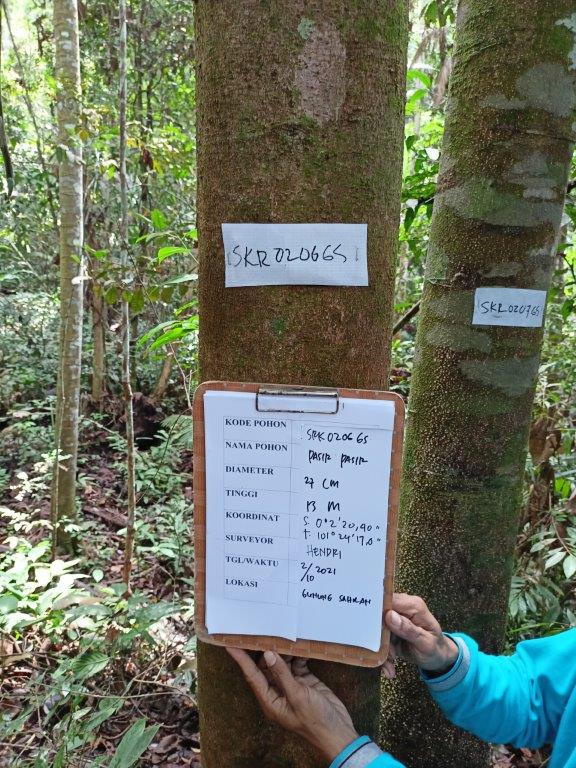 SKR0206GS
SKR0207GS
KODE POHON SRK0206GS
NAMA POHON PASIR PASIR
DIAMETER 27 CM
TINGGI 13 M
KOORDINAT S. 0°2'20,90"
T. 101°24'17,0"
SURVEYOR HENDRI
TGL/WAKTU 2/10 2021
LOKASI GUNUNG SAHILAN